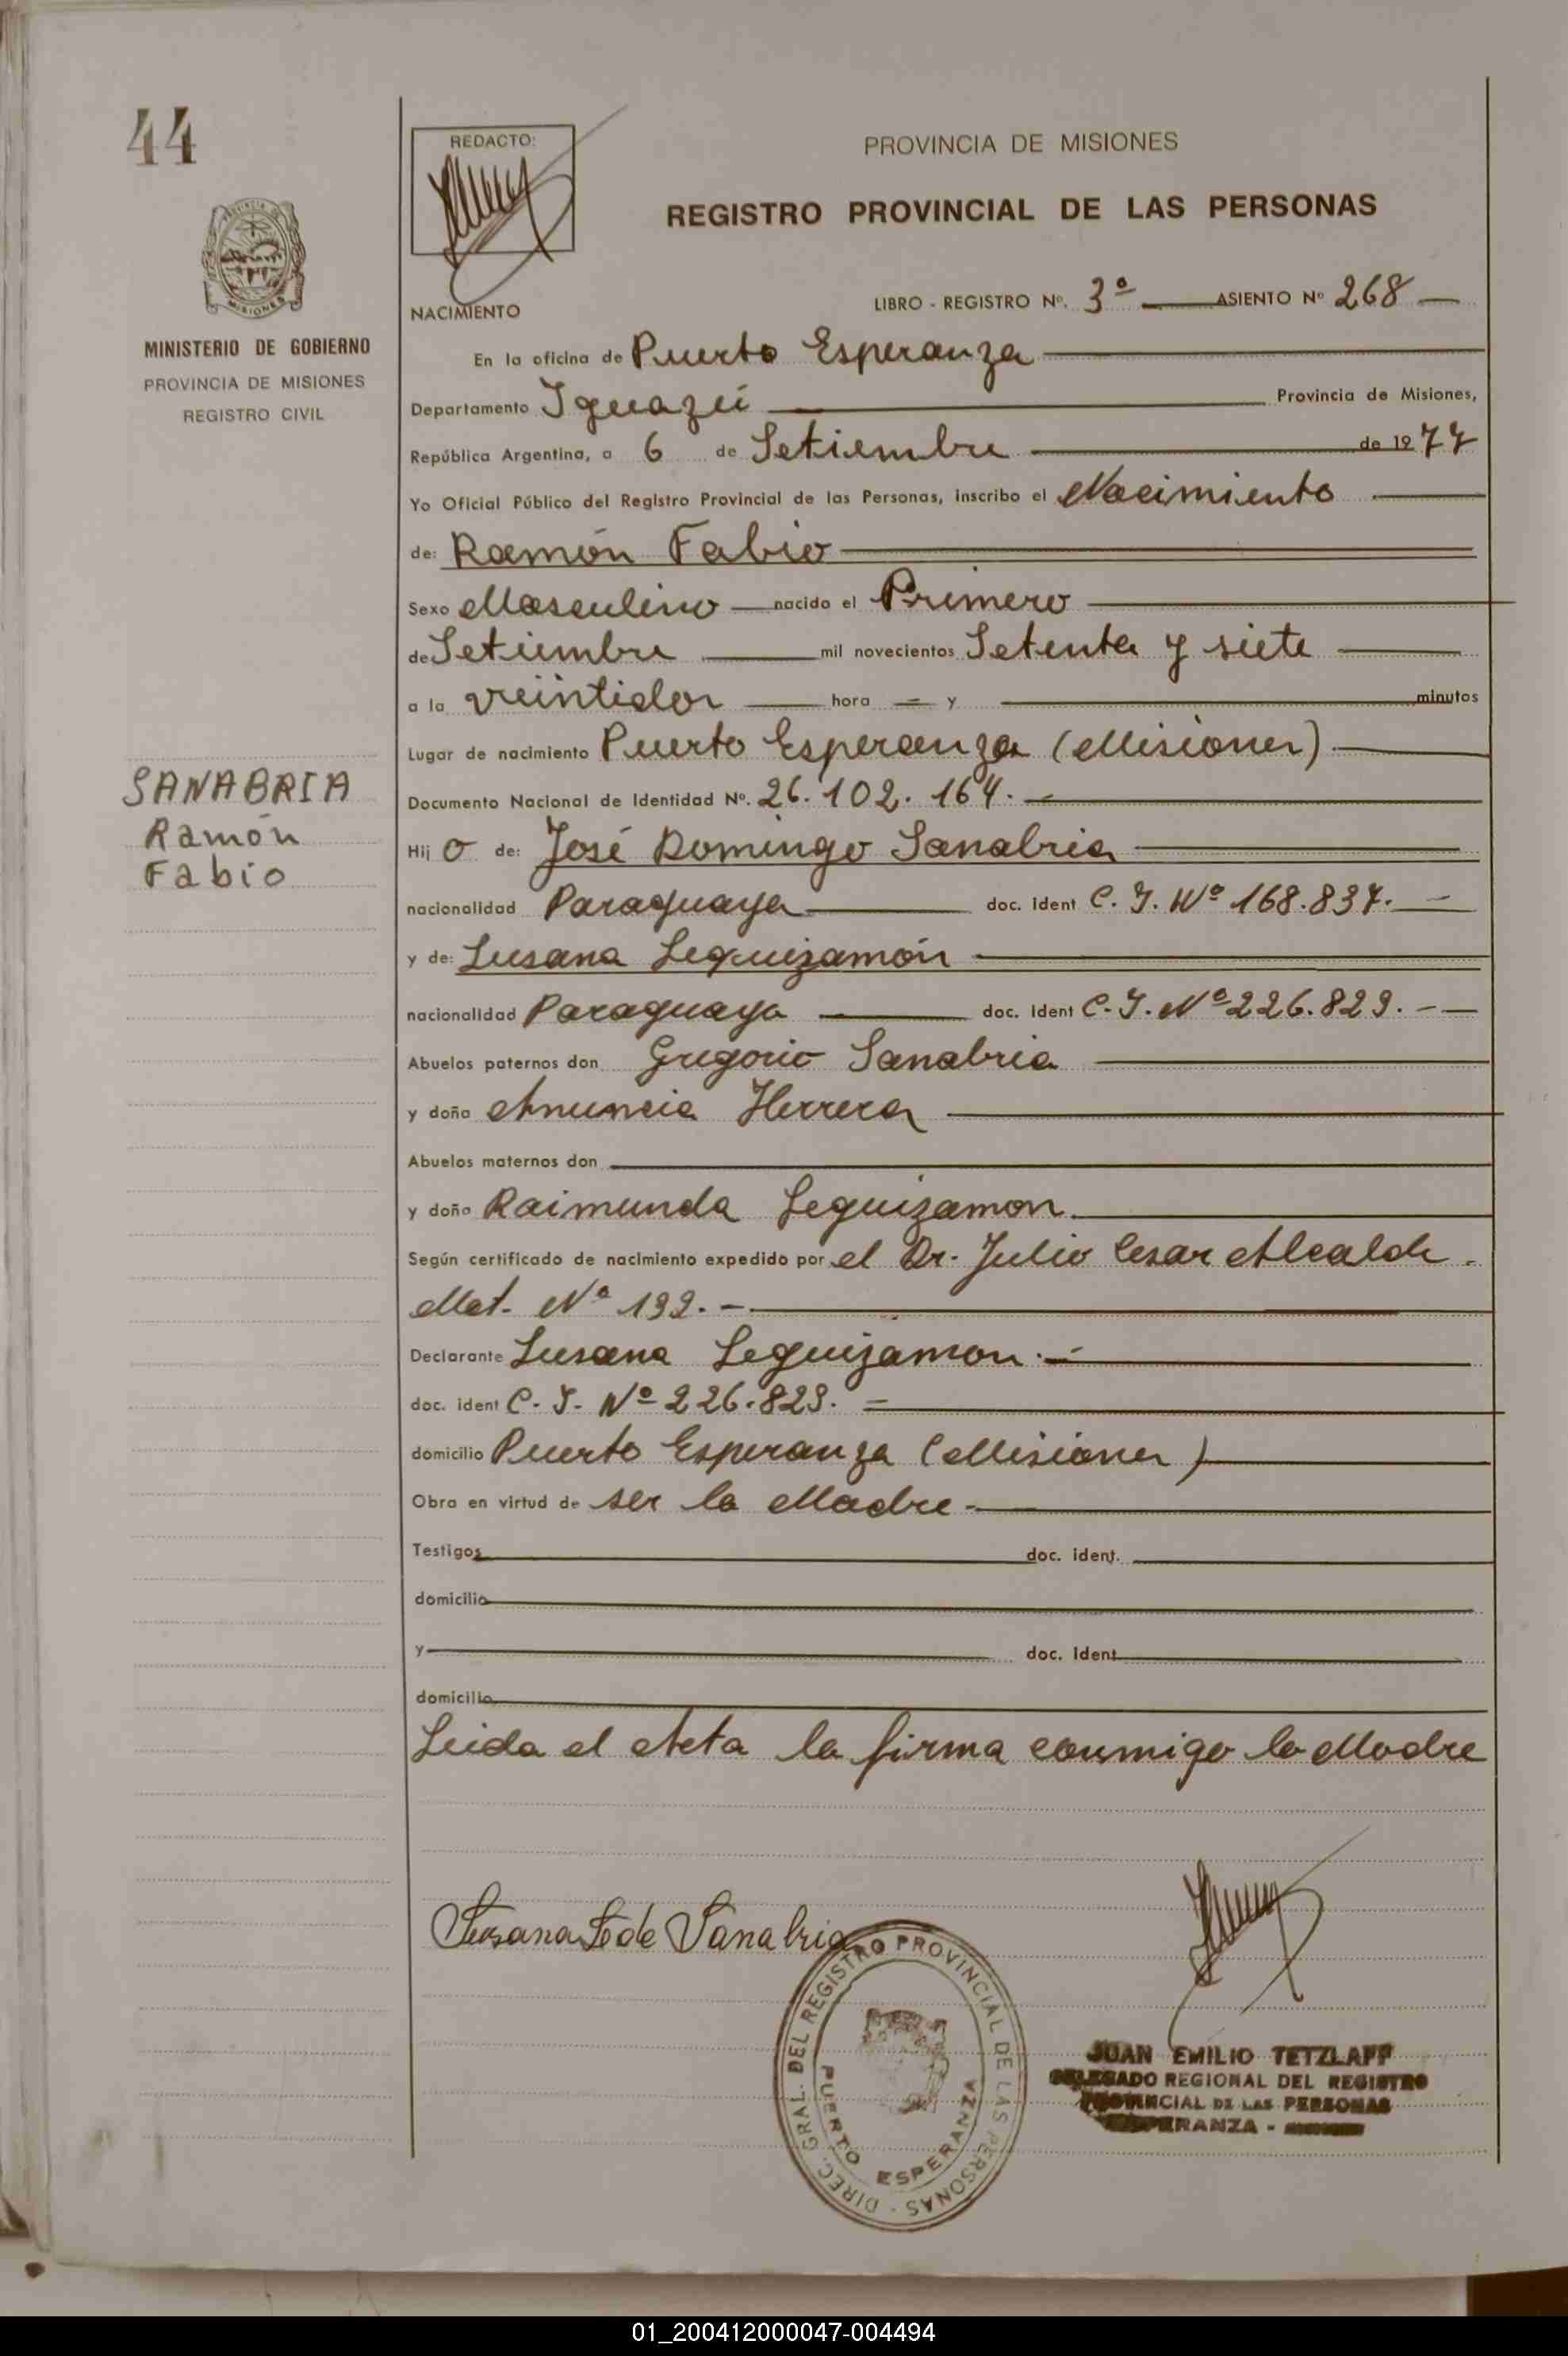 44
REDACTO:
PROVINCIA DE MISIONES
REGISTRO PROVINCIAL DE LAS PERSONAS
NACIMIENTO
LIBRO - REGISTRO Nº. 3º ASIENTO Nº 268
MINISTERIO DE GOBIERNO
PROVINCIA DE MISIONES
REGISTRO CIVIL
En la oficina de Puerto Esperanza
Departamento Iguazú Provincia de Misiones,
República Argentina, a 6 de Setiembre de 1977
Yo Oficial Público del Registro Provincial de las Personas, inscribo el Nacimiento
de: Ramón Fabio
Sexo Masculino nacido el Primero
de Setiembre mil novecientos Setenta y siete
a la veintidos hora y minutos
Lugar de nacimiento Puerto Esperanza (Misiones)
SANABRIA
Ramón
Fabio
Documento Nacional de Identidad Nº. 26.102.164.
Hij o de: José Domingo Sanabria
nacionalidad Paraguaya doc. ident C. I. Nº 168.837.
y de: Susana Leguizamón
nacionalidad Paraguaya doc. ident C. I. Nº 226.829.
Abuelos paternos don Gregorio Sanabria
y doña Anuncia Herrera
Abuelos maternos don
y doña Raimunda Leguizamon
Según certificado de nacimiento expedido por el Dr. Julio Cesar Alcalde
Mat. Nº 199.
Declarante Susana Leguizamon.
doc. ident C. I. Nº 226.829.
domicilio Puerto Esperanza (Misiones)
Obra en virtud de ser la Madre
Testigos doc. ident.
domicilio
y doc. ident
domicilio
Leida el Acta la firma conmigo la Madre
Susana L de Sanabria
DIREC. GRAL. DEL REGISTRO PROVINCIAL DE LAS PERSONAS -
PUERTO ESPERANZA
JUAN EMILIO TETZLAFF
DELEGADO REGIONAL DEL REGISTRO
PROVINCIAL DE LAS PERSONAS
ESPERANZA -
01_200412000047-004494